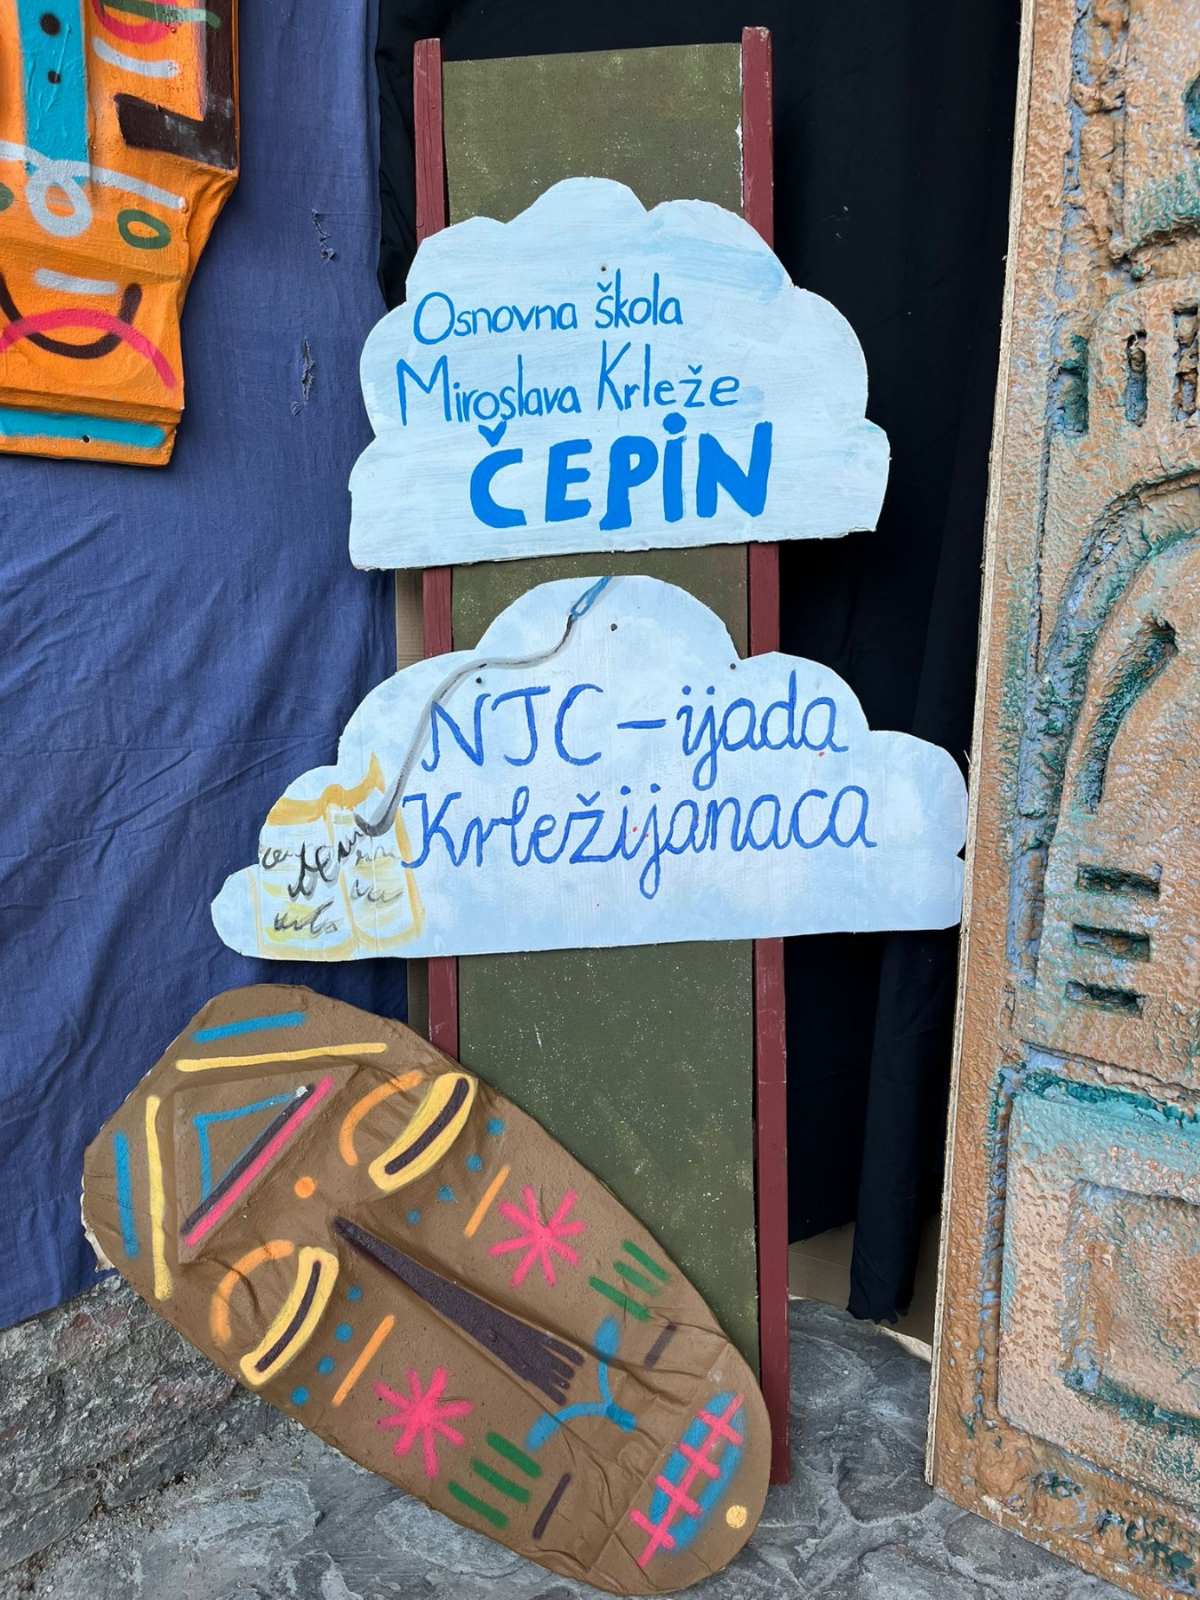 Osnovna škola
Miroslava Krleže
ČEPiN
NJC-ijada
Krležijanaca